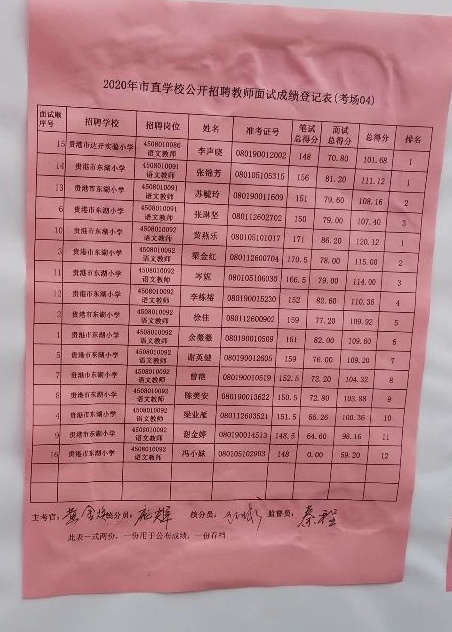 2020年市直学校公开招聘教师面试成绩登记表(考场04)
面试顺序号 招聘学校 招聘岗位 姓名 准考证号 笔试总得分 面试总得分 总得分 排名
15 贵港市达开实验小学 4508010086 语文教师 李声晓 080190012002 148 70.80 101.68 1
14 贵港市东湖小学 4508010091 语文教师 张锦芳 080105105315 156 81.20 111.12 1
13 贵港市东湖小学 4508010091 语文教师 苏毓玲 080190011609 151 79.60 108.16 2
6 贵港市东湖小学 4508010091 语文教师 张琳坚 080112602702 150 79.00 107.40 3
10 贵港市东湖小学 4508010092 语文教师 黄燕乐 080105101017 171 86.20 120.12 1
3 贵港市东湖小学 4508010092 语文教师 梁金红 080112600704 170.5 78.00 115.00 2
11 贵港市东湖小学 4508010092 语文教师 岑妮 080105106030 166.5 79.00 114.00 3
12 贵港市东湖小学 4508010092 语文教师 李栋椿 080190015230 152 82.60 110.36 4
2 贵港市东湖小学 4508010092 语文教师 徐佳 080112600902 159 77.20 109.92 5
1 贵港市东湖小学 4508010092 语文教师 余薇薇 080190010509 151 82.00 109.60 6
5 贵港市东湖小学 4508010092 语文教师 谢英健 080190012605 159 76.00 109.20 7
7 贵港市东湖小学 4508010092 语文教师 曾艳 080190010519 152.5 72.20 104.32 8
8 贵港市东湖小学 4508010092 语文教师 陈美安 080190013622 150.5 72.80 103.88 9
4 贵港市东湖小学 4508010092 语文教师 梁业雁 080112603521 151.5 66.26 100.36 10
9 贵港市东湖小学 4508010092 语文教师 谢金婷 080190014513 148.5 64.60 98.16 11
16 贵港市东湖小学 4508010092 语文教师 冯小妹 080105102903 148 0.00 59.20 12
主考官: 统分员: 核分员: 监督员:
此表一式两份,一份用于公布成绩,一份存档